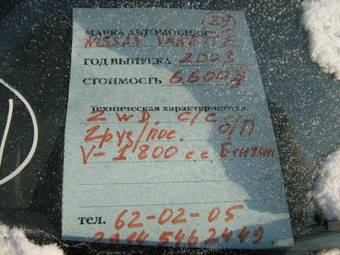 (29)
МАРКА АВТОМОБИЛЯ
NISSAN VANETTE
ГОД ВЫПУСКА 2003
СТОИМОСТЬ 6600$
Техническая характеристика
2 WD. С/С
Груз/пос. б/П
V-1800 с.с. Бензин
тел. 62-02-05